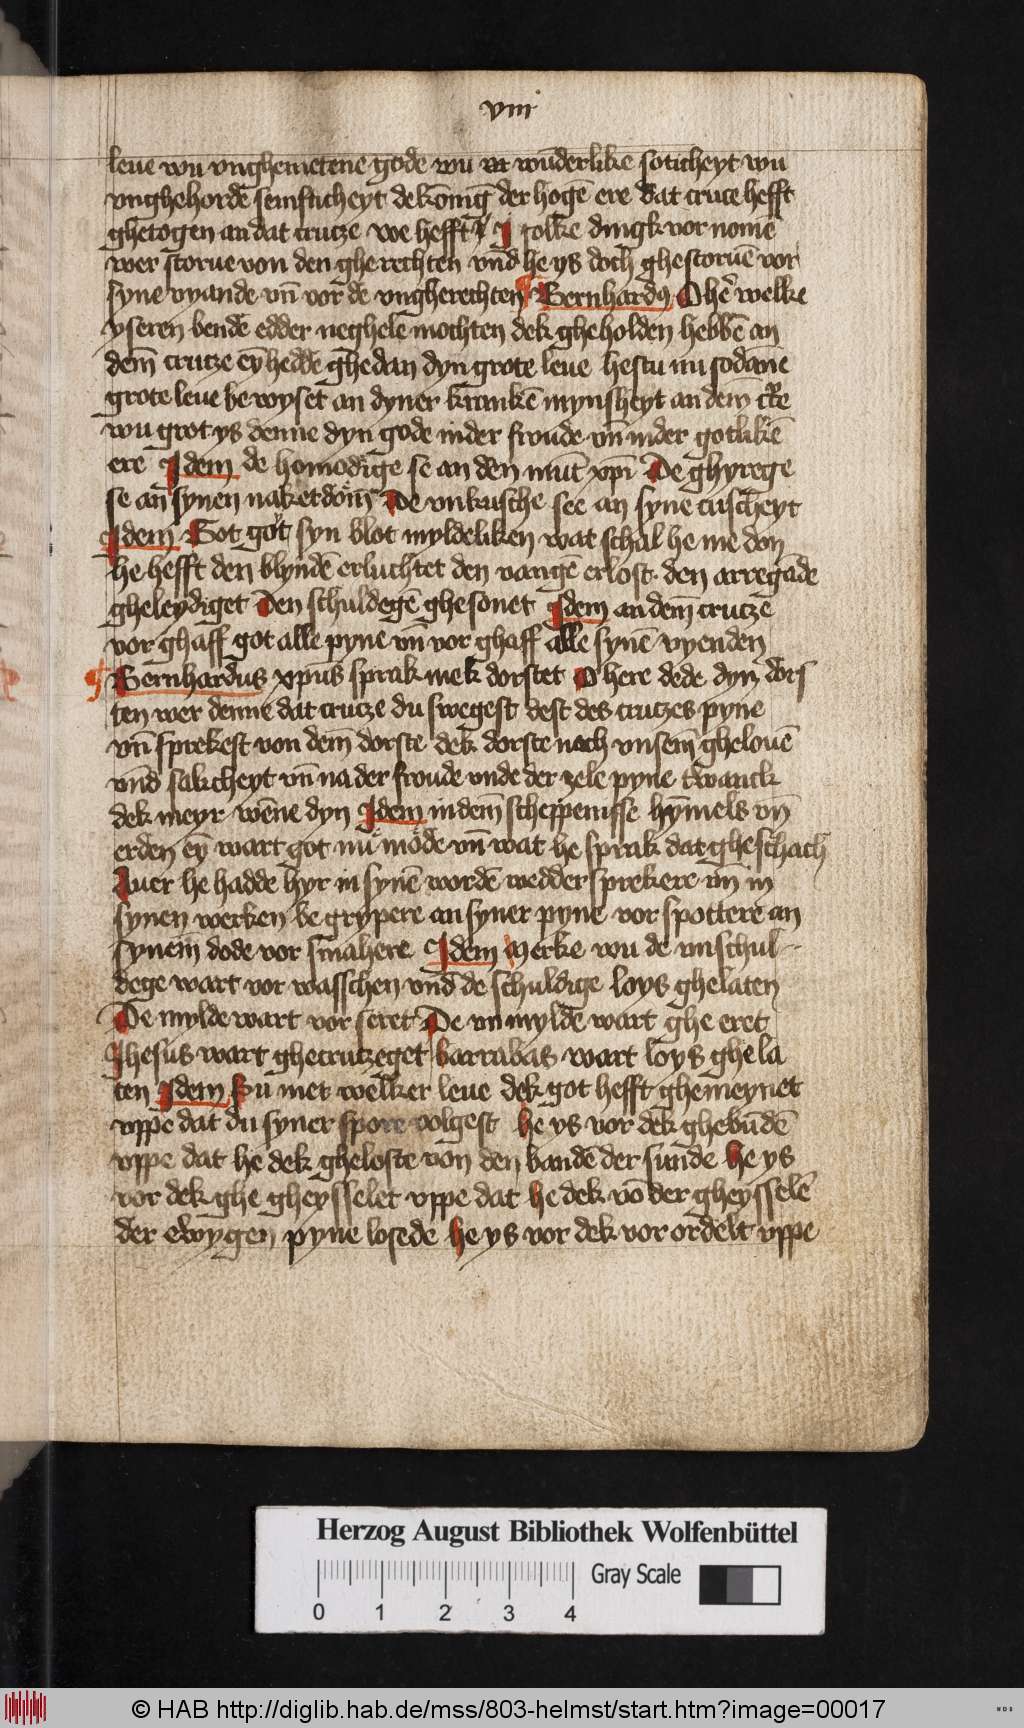 viii
leue wu vnghemetene gode wu wūderlike soticheyt wu
vnghehordē senfticheyt de kōnīg der hogē ere dat cruce hefft
ghetogen an dat crutze we hefft solke dingk vor nomē
wer storue von den gherechten vnd he ys doch ghestoruē vor
syne vyande vn̄ vor de vngherechten Bernhardꝰ O hē welke
yseren bende edder neghele mochten dek gheholden hebbē an
dem̄ crutze eȳ hedde ghedan dyn grote leue hestu nu sodāne
grote leue bewyset an dyner krankē mynsheyt an dem̄
wu grot ys denne dyn gode in der froude vn̄ in der gotlikē
ere Idem de homodige se an den mūt xp̄i De ghyrege
se an synen naketdom De vnkusche see an syne cuscheyt
Idem Got got syn blot myldeliken wat schal he me don
he hefft den blyndē erluchtet den vangē erlost den arregāde
gheleydiget Den schuldegē ghesonet Idem an dem̄ crutze
vor ghaff got alle pyne vn̄ vor ghaff alle synē vyenden
Bernhardus xp̄us sprak mek dorstet O here dede dyn dors
ten wer denne dat crutze du swegest dest des crutzes pyne
vn̄ sprekest von dem̄ dorste dek dorste noch vnsem̄ ghelouē
vnd salicheyt vn̄ na der froude vnde der zele pyne twanck
dek meyr wēne dyn Idem in dem̄ scheppenisse hȳmels vn̄
erden eȳ wart got nu mode vn̄ wat he sprak dat gheschach
Auer he hadde hyr in synē wordē weddersprekere vn̄ in
synen werken begrypere an syner pyne vor spottere an
synem dode vor smahere Idem Merke wu de vnschul-
dege wart vor wasschen vnd de schuldige loys ghelaten
De mylde wart vor seret De vnmylde wart ghe eret
Jhesus wart ghecrutzeget barrabas wart loys ghela
ten Idem Su met welker leue dek got hefft ghemeynet
vppe dat du syner spore volgest he ys vor dek ghebūdē
vppe dat he dek gheloste von den bandē der sunde he ys
vor dek ghe gheysselet vppe dat he dek vō der gheysselē
der ewygen pyne losede he ys vor dek vor ordelt vppe
Herzog August Bibliothek Wolfenbüttel
Gray Scale
0 1 2 3 4
© HAB http://diglib.hab.de/mss/803-helmst/start.htm?image=00017